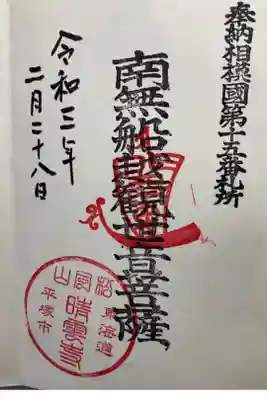 奉納相模國第十五番札所
南無船越観世音菩薩
令和三年
二月二十八日
松岳山
晴雲寺
東海道
平塚市